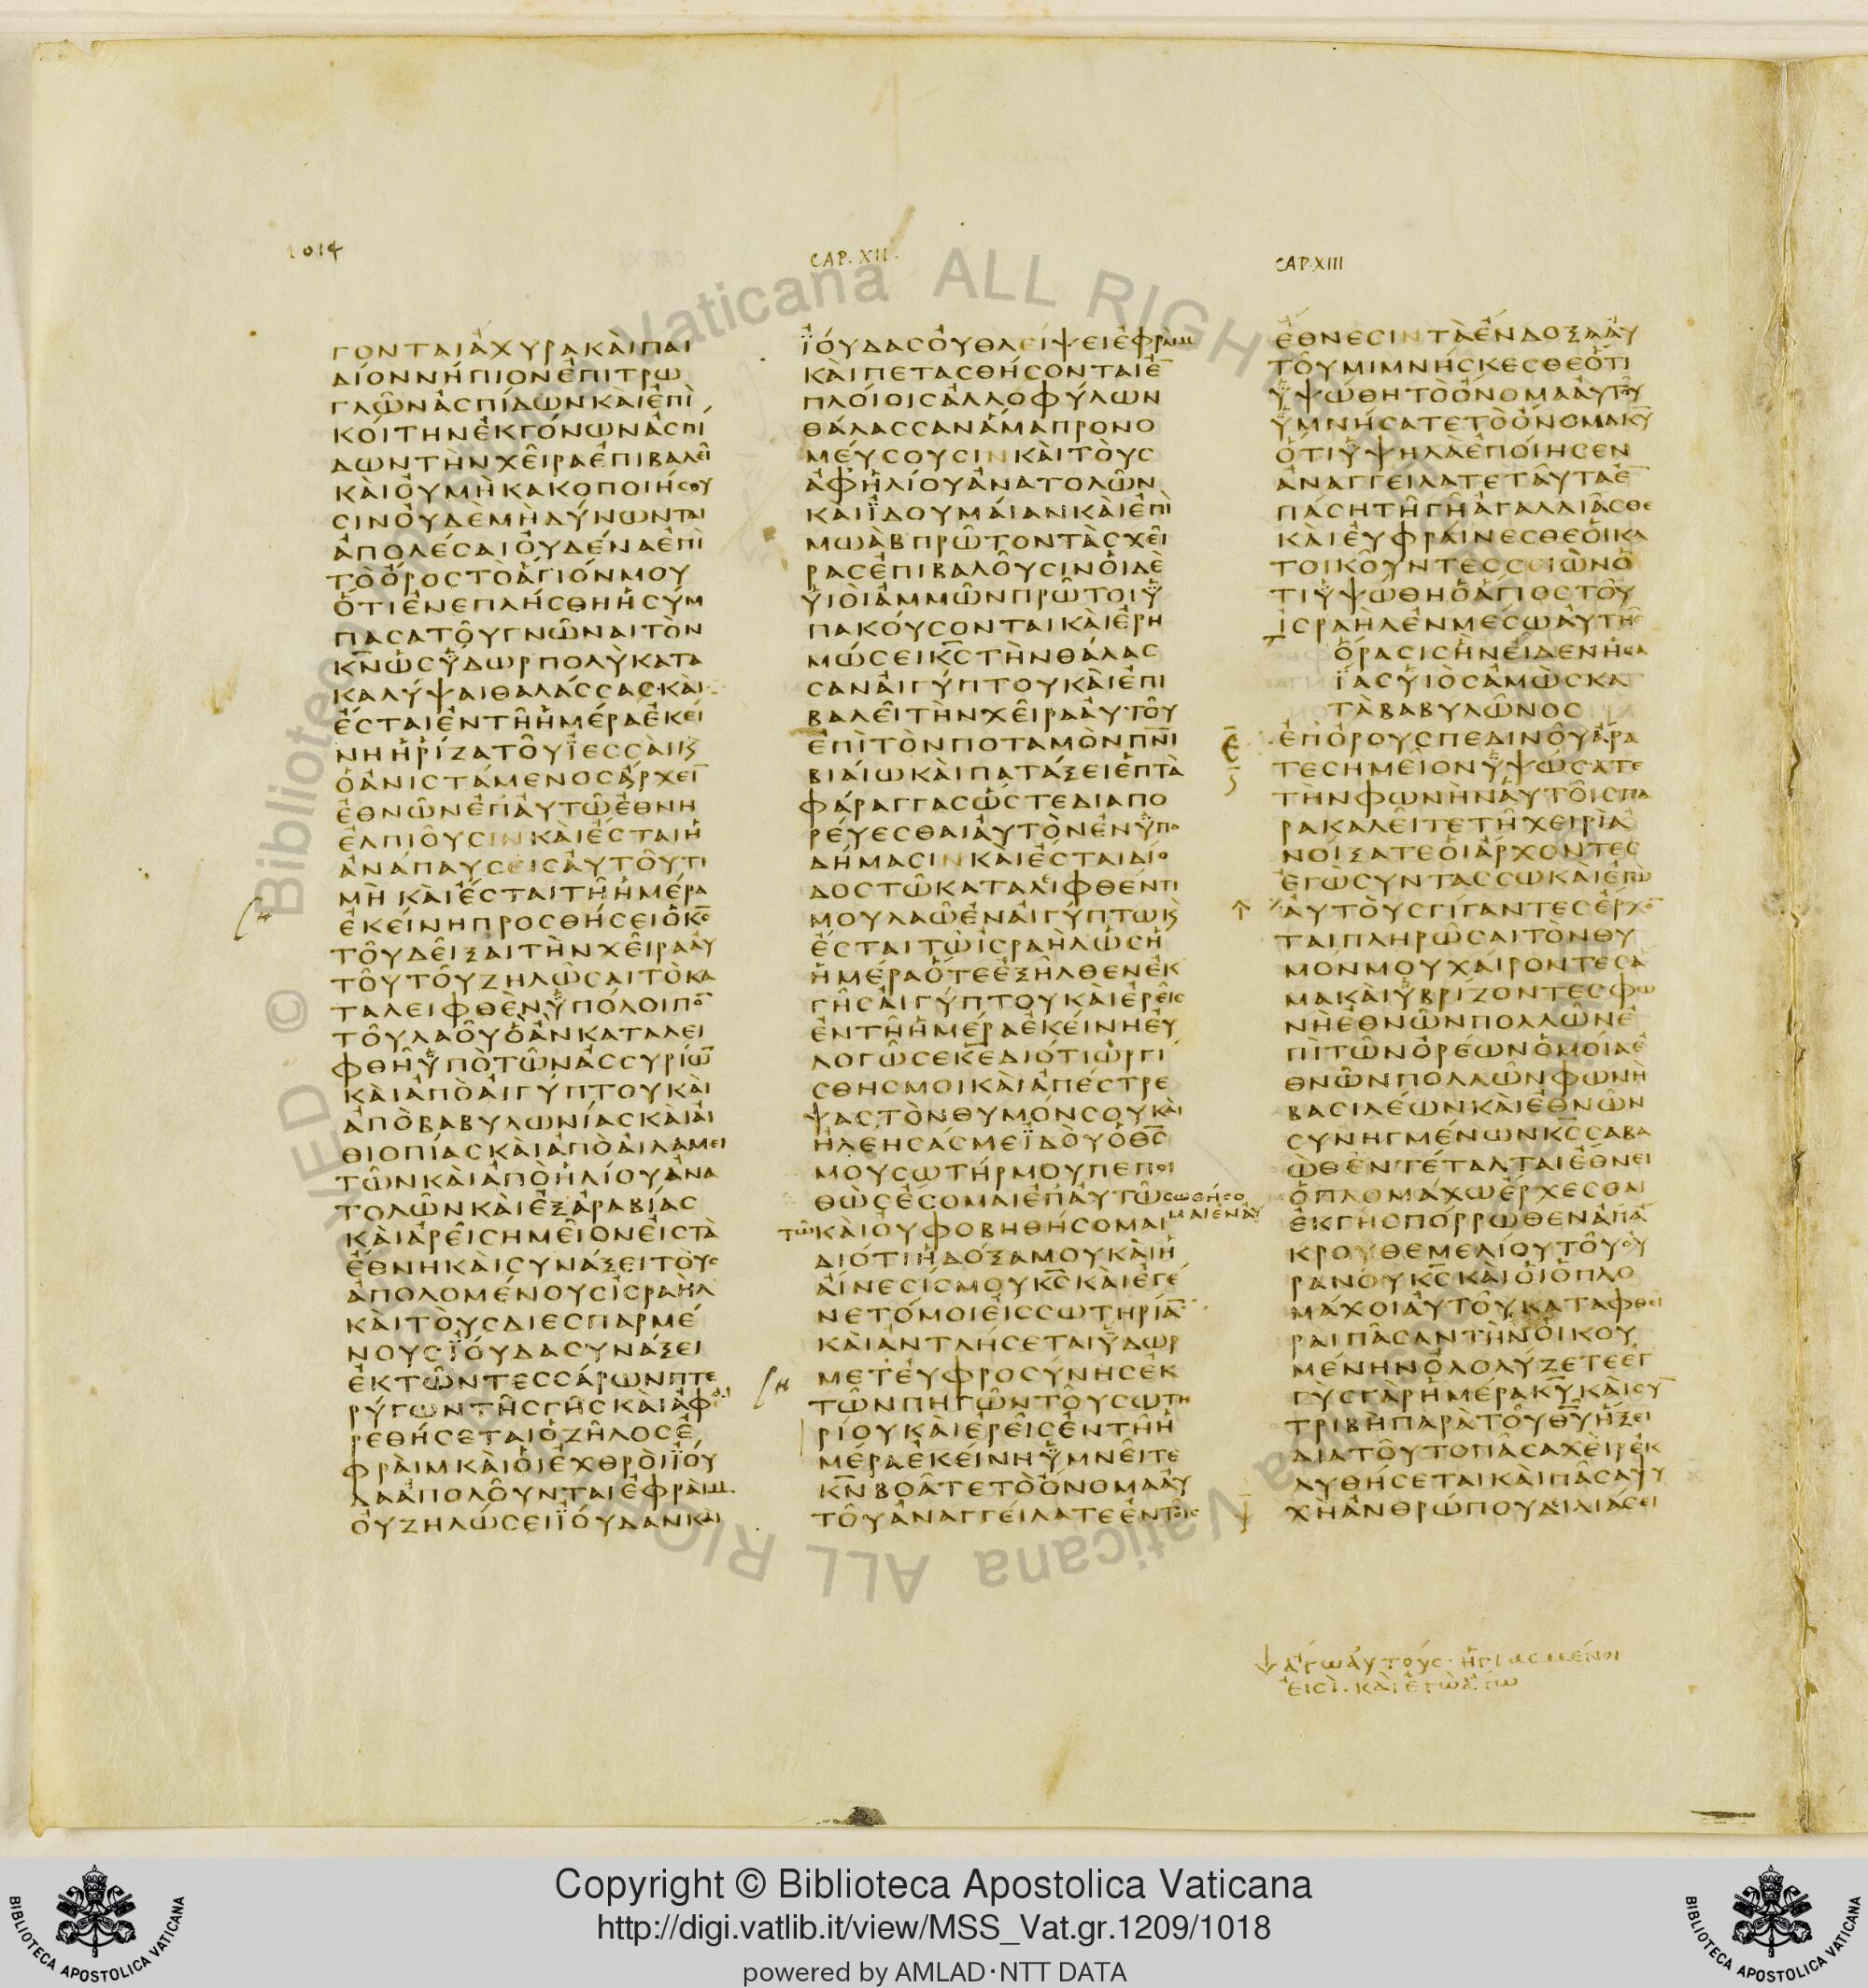 1014
CAP. XII.
CAP. XIII
ΓΟΝΤΑΙΑΧΥΡΑΚΑΙΠΑΙ
ΔΙΟΝΝΗΠΙΟΝΕΠΙΤΡΩ
ΓΛΩΝΑΣΠΙΔΩΝΚΑΙΕΠΙ
ΚΟΙΤΗΝΕΚΓΟΝΩΝΑΣΠΙ
ΔΩΝΤΗΝΧΕΙΡΑΕΠΙΒΑΛΕΙ
ΚΑΙΟΥΜΗΚΑΚΟΠΟΙΗΣΟΥ
ΣΙΝΟΥΔΕΜΗΔΥΝΩΝΤΑΙ
ΑΠΟΛΕΣΑΙΟΥΔΕΝΑΕΠΙ
ΤΟΟΡΟΣΤΟΑΓΙΟΝΜΟΥ
ΟΤΙΕΝΕΠΛΗΣΘΗΗΣΥΜ
ΠΑΣΑΤΟΥΓΝΩΝΑΙΤΟΝ
ΚΝΩΣΥΔΩΡΠΟΛΥΚΑΤΑ
ΚΑΛΥΨΑΙΘΑΛΑΣΣΑΣΚΑΙ
ΕΣΤΑΙΕΝΤΗΗΜΕΡΑΕΚΕΙ
ΝΗΗΡΙΖΑΤΟΥΙΕΣΣΑΙΚ
ΟΑΝΙΣΤΑΜΕΝΟΣΑΡΧΕΙ
ΕΘΝΩΝΕΠΑΥΤΩΕΘΝΗ
ΕΛΠΙΟΥΣΙΝΚΑΙΕΣΤΑΙΗ
ΑΝΑΠΑΥΣΕΙΣΑΥΤΟΥΤΙ
ΜΗΚΑΙΕΣΤΑΙΤΗΗΜΕΡΑ
ΕΚΕΙΝΗΠΡΟΣΘΗΣΕΙΟΚΣ
ΤΟΥΔΕΙΞΑΙΤΗΝΧΕΙΡΑΑΥ
ΤΟΥΤΟΥΖΗΛΩΣΑΙΤΟΚΑ
ΤΑΛΕΙΦΘΕΝΥΠΟΛΟΙΠΟ
ΤΟΥΛΑΟΥΟΑΝΚΑΤΑΛΕΙ
ΦΘΗΥΠΟΤΩΝΑΣΣΥΡΙΩ
ΚΑΙΑΠΟΑΙΓΥΠΤΟΥΚΑΙ
ΑΠΟΒΑΒΥΛΩΝΙΑΣΚΑΙΑΙ
ΘΙΟΠΙΑΣΚΑΙΑΠΟΑΙΛΑΜΕΙ
ΤΩΝΚΑΙΑΠΟΗΛΙΟΥΑΝΑ
ΤΟΛΩΝΚΑΙΕΞΑΡΑΒΙΑΣ
ΚΑΙΑΡΕΙΣΗΜΕΙΟΝΕΙΣΤΑ
ΕΘΝΗΚΑΙΣΥΝΑΞΕΙΤΟΥΣ
ΑΠΟΛΟΜΕΝΟΥΣΙΣΡΑΗΛ
ΚΑΙΤΟΥΣΔΙΕΣΠΑΡΜΕ
ΝΟΥΣΙΟΥΔΑΣΥΝΑΞΕΙ
ΕΚΤΩΝΤΕΣΣΑΡΩΝΠΤΕ
ΡΥΓΩΝΤΗΣΓΗΣΚΑΙΑΦΑΙ
ΡΕΘΗΣΕΤΑΙΟΖΗΛΟΣΕ
ΦΡΑΙΜΚΑΙΟΙΕΧΘΡΟΙΙΟΥ
ΔΑΑΠΟΛΟΥΝΤΑΙΕΦΡΑΙΜ
ΟΥΖΗΛΩΣΕΙΙΟΥΔΑΝΚΑΙ
ΙΟΥΔΑΣΟΥΘΛΕΙΨΕΙΕΦΡΑΙΜ
ΚΑΙΠΕΤΑΣΘΗΣΟΝΤΑΙΕ
ΠΛΟΙΟΙΣΑΛΛΟΦΥΛΩΝ
ΘΑΛΑΣΣΑΝΑΜΑΠΡΟΝΟ
ΜΕΥΣΟΥΣΙΝΚΑΙΤΟΥΣ
ΑΦΗΛΙΟΥΑΝΑΤΟΛΩΝ
ΚΑΙΙΔΟΥΜΑΙΑΝΚΑΙΕΠΙ
ΜΩΑΒΠΡΩΤΟΝΤΑΣΧΕΙ
ΡΑΣΕΠΙΒΑΛΟΥΣΙΝΟΙΔΕ
ΥΙΟΙΑΜΜΩΝΠΡΩΤΟΙΥ
ΠΑΚΟΥΣΟΝΤΑΙΚΑΙΕΡΗ
ΜΩΣΕΙΚΣΤΗΝΘΑΛΑΣ
ΣΑΝΑΙΓΥΠΤΟΥΚΑΙΕΠΙ
ΒΑΛΕΙΤΗΝΧΕΙΡΑΑΥΤΟΥ
ΕΠΙΤΟΝΠΟΤΑΜΟΝΠΝΙ
ΒΙΑΙΩΚΑΙΠΑΤΑΞΕΙΕΠΤΑ
ΦΑΡΑΓΓΑΣΩΣΤΕΔΙΑΠΟ
ΡΕΥΕΣΘΑΙΑΥΤΟΝΕΝΥΠΟ
ΔΗΜΑΣΙΝΚΑΙΕΣΤΑΙΔΙΟ
ΔΟΣΤΩΚΑΤΑΛΙΦΘΕΝΤΙ
ΜΟΥΛΑΩΕΝΑΙΓΥΠΤΩΚ
ΕΣΤΑΙΤΩΙΣΡΑΗΛΩΣΗ
ΗΜΕΡΑΟΤΕΕΞΗΛΘΕΝΕΚ
ΓΗΣΑΙΓΥΠΤΟΥΚΑΙΕΡΕΙΣ
ΕΝΤΗΗΜΕΡΑΕΚΕΙΝΗΕΥ
ΛΟΓΩΣΕΚΕΔΙΟΤΙΩΡΓΙ
ΣΘΗΣΜΟΙΚΑΙΑΠΕΣΤΡΕ
ΨΑΣΤΟΝΘΥΜΟΝΣΟΥΚΑΙ
ΗΛΕΗΣΑΣΜΕΙΔΟΥΟΘΣ
ΜΟΥΣΩΤΗΡΜΟΥΠΕΠΟΙ
ΘΩΣΕΣΟΜΑΙΕΠΑΥΤΩΣΩΘΗΣΟ
ΜΑΙΕΝΑΥ
ΤΩΚΑΙΟΥΦΟΒΗΘΗΣΟΜΑΙ
ΔΙΟΤΙΗΔΟΞΑΜΟΥΚΑΙΗ
ΑΙΝΕΣΙΣΜΟΥΚΣΚΑΙΕΓΕ
ΝΕΤΟΜΟΙΕΙΣΣΩΤΗΡΙΑ
ΚΑΙΑΝΤΛΗΣΕΤΑΙΥΔΩΡ
ΜΕΤΕΥΦΡΟΣΥΝΗΣΕΚ
ΤΩΝΠΗΓΩΝΤΟΥΣΩΤΗ
ΡΙΟΥΚΑΙΕΡΕΙΣΕΝΤΗΗ
ΜΕΡΑΕΚΕΙΝΗΥΜΝΕΙΤΕ
ΚΝΒΟΑΤΕΤΟΟΝΟΜΑΑΥ
ΤΟΥΑΝΑΓΓΕΙΛΑΤΕΕΝΤΟΙΣ
ΕΘΝΕΣΙΝΤΑΕΝΔΟΞΑΑΥ
ΤΟΥΜΙΜΝΗΣΚΕΣΘΕΟΤΙ
ΥΨΩΘΗΤΟΟΝΟΜΑΑΥΤΟΥ
ΥΜΝΗΣΑΤΕΤΟΟΝΟΜΑΚΥ
ΟΤΙΥΨΗΛΑΕΠΟΙΗΣΕΝ
ΑΝΑΓΓΕΙΛΑΤΕΤΑΥΤΑΕ
ΠΑΣΗΤΗΓΗΑΓΑΛΛΙΑΣΘΕ
ΚΑΙΕΥΦΡΑΙΝΕΣΘΕΟΙΚΑ
ΤΟΙΚΟΥΝΤΕΣΣΕΙΩΝΟ
ΤΙΥΨΩΘΗΟΑΓΙΟΣΤΟΥ
ΙΣΡΑΗΛΕΝΜΕΣΩΑΥΤΗΣ
ΟΡΑΣΙΣΗΝΕΙΔΕΝΗΣΑ
ΙΑΣΥΙΟΣΑΜΩΣΚΑ
ΤΑΒΑΒΥΛΩΝΟΣ
ΕΠΟΡΟΥΣΠΕΔΙΝΟΥΑΡΑ
ΤΕΣΗΜΕΙΟΝΥΨΩΣΑΤΕ
ΤΗΝΦΩΝΗΝΑΥΤΟΙΣΠΑ
ΡΑΚΑΛΕΙΤΕΤΗΧΕΙΡΙΑ
ΝΟΙΞΑΤΕΟΙΑΡΧΟΝΤΕΣ
ΕΓΩΣΥΝΤΑΣΣΩΚΑΙΕΓΩ
ΑΥΤΟΥΣΓΙΓΑΝΤΕΣΕΡΧΟ
ΤΑΙΠΛΗΡΩΣΑΙΤΟΝΘΥ
ΜΟΝΜΟΥΧΑΙΡΟΝΤΕΣΑ
ΜΑΚΑΙΥΒΡΙΖΟΝΤΕΣΦΩ
ΝΗΕΘΝΩΝΠΟΛΛΩΝΕ
ΠΙΤΩΝΟΡΕΩΝΟΜΟΙΑΕ
ΘΝΩΝΠΟΛΛΩΝΦΩΝΗ
ΒΑΣΙΛΕΩΝΚΑΙΕΘΝΩΝ
ΣΥΝΗΓΜΕΝΩΝΚΣΣΑΒΑ
ΩΘΕΝΤΕΤΑΛΤΑΙΕΘΝΕΙ
ΟΠΛΟΜΑΧΩΕΡΧΕΣΘΑΙ
ΕΚΓΗΣΠΟΡΡΩΘΕΝΑΠΑ
ΚΡΟΥΘΕΜΕΛΙΟΥΤΟΥΟΥ
ΡΑΝΟΥΚΣΚΑΙΟΙΟΠΛΟ
ΜΑΧΟΙΑΥΤΟΥΚΑΤΑΦΘΕΙ
ΡΑΙΠΑΣΑΝΤΗΝΟΙΚΟΥ
ΜΕΝΗΝΟΛΟΛΥΖΕΤΕΕΓ
ΓΥΣΓΑΡΗΜΕΡΑΚΥΚΑΙΣΥ
ΤΡΙΒΗΠΑΡΑΤΟΥΘΥΗΞΕΙ
ΔΙΑΤΟΥΤΟΠΑΣΑΧΕΙΡΕΚ
ΛΥΘΗΣΕΤΑΙΚΑΙΠΑΣΑΨΥ
ΧΗΑΝΘΡΩΠΟΥΔΙΛΙΑΣΕΙ
ἄγωαὐτούς·ἡγιασμένοι
εἰσὶ·καὶἐγὼἄγω
Copyright © Biblioteca Apostolica Vaticana
http://digi.vatlib.it/view/MSS_Vat.gr.1209/1018
powered by AMLAD·NTT DATA
BIBLIOTECA APOSTOLICA VATICANA
BIBLIOTECA APOSTOLICA VATICANA